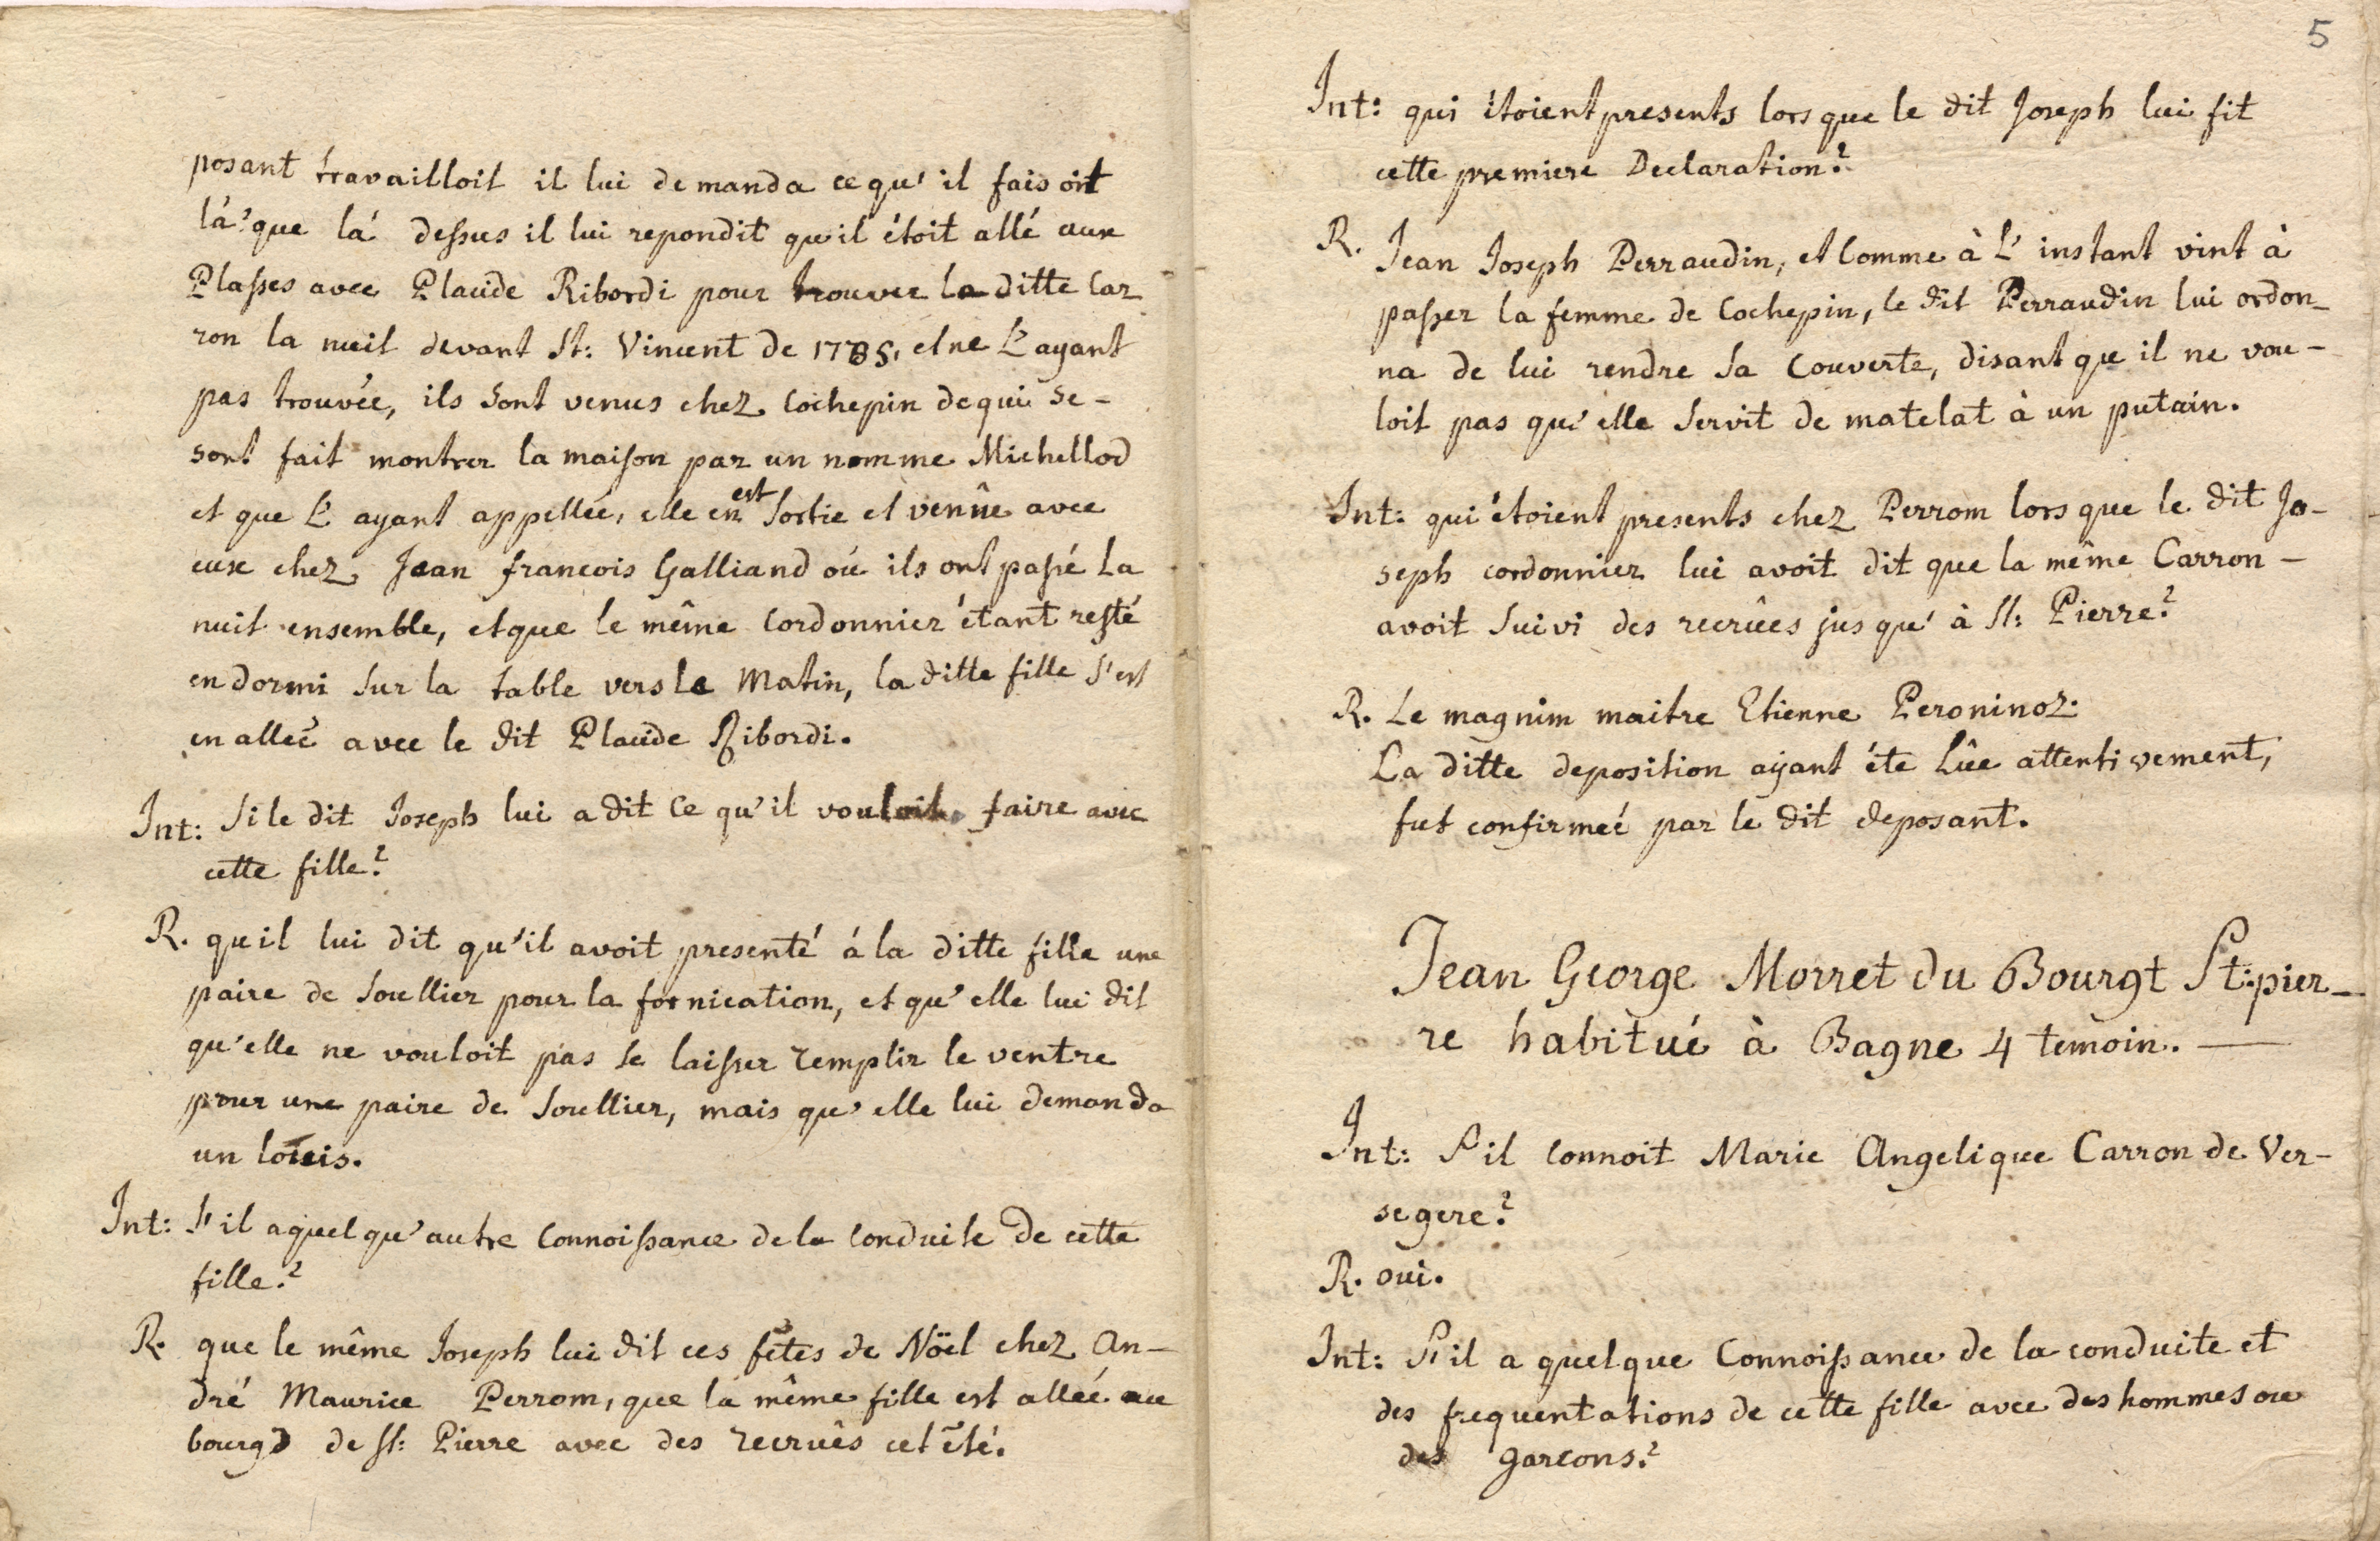 posant travailloit il lui demanda ce qu'il faisoit
là? que là dessus il lui repondit qu'il étoit allé aux
Plasses avec Plaide Ribordi pour trouver la ditte Car
ron la nuit devant St: Vincent de 1785, et ne L'ayant
pas trouvée, ils sont venus chez Cochepin de qui se-
sont fait montrer la maison par un nomme Michellod
et que L'ayant appellée, elle en est sortie et venûe avec
eux chez Jean francois Galliand où ils ont passé La
nuit ensemble, et que le même Cordonnier étant resté
endormi sur la table vers le Matin, la ditte fille s'est
en alleé avec le dit Plaide Ribordi.
Int: Si le dit Joseph lui a dit ce qu'il vouloit faire avec
cette fille?
R. qu il lui dit qu'il avoit presenté á la ditte fille une
paire de Soullier pour la fornication, et qu'elle lui dit
qu'elle ne vouloit pas se laisser remplir le ventre
pour une paire de Soullier, mais qu'elle lui demanda
un loüis.
Int: S'il a quelqu'autre Connoissance de la Conduite de cette
fille?
R. que le même Joseph lui dit ces fêtes de Nöel chez An-
dré Maurice Perrom, que la même fille est alleé au
bourgd de St: Pierre avec des recruês cet été.
5
Int: qui étoient presents lors que le dit Joseph lui fit
cette premiere Declaration?
R. Jean Joseph Perraudin, et Comme à L'instant vint à
passer la femme de Cochepin, le dit Perraudin lui ordon-
na de lui rendre sa Couverte, disant qu'il ne vou-
loit pas qu'elle servit de matelat à un putain.
Int: qui étoient presents chez Perrom lors que le dit Jo-
seph cordonnier lui avoit dit que la même Carron-
avoit suivi des recrûes jusqu'à St: Pierre?
R. Le magnim maitre Etienne Peroninoz.
La ditte deposition ayant éte Lûe attentivement,
fut confirmeé par le dit deposant.
Jean George Morret du Bourgt St: pier-
re habitué à Bagne 4 temoin.
Int: S'il Connoit Marie Angelique Carron de Ver-
segere?
R. oui.
Int: S'il a quelque Connoissance de la conduite et
des frequentations de cette fille avec des hommes ou
des garcons?